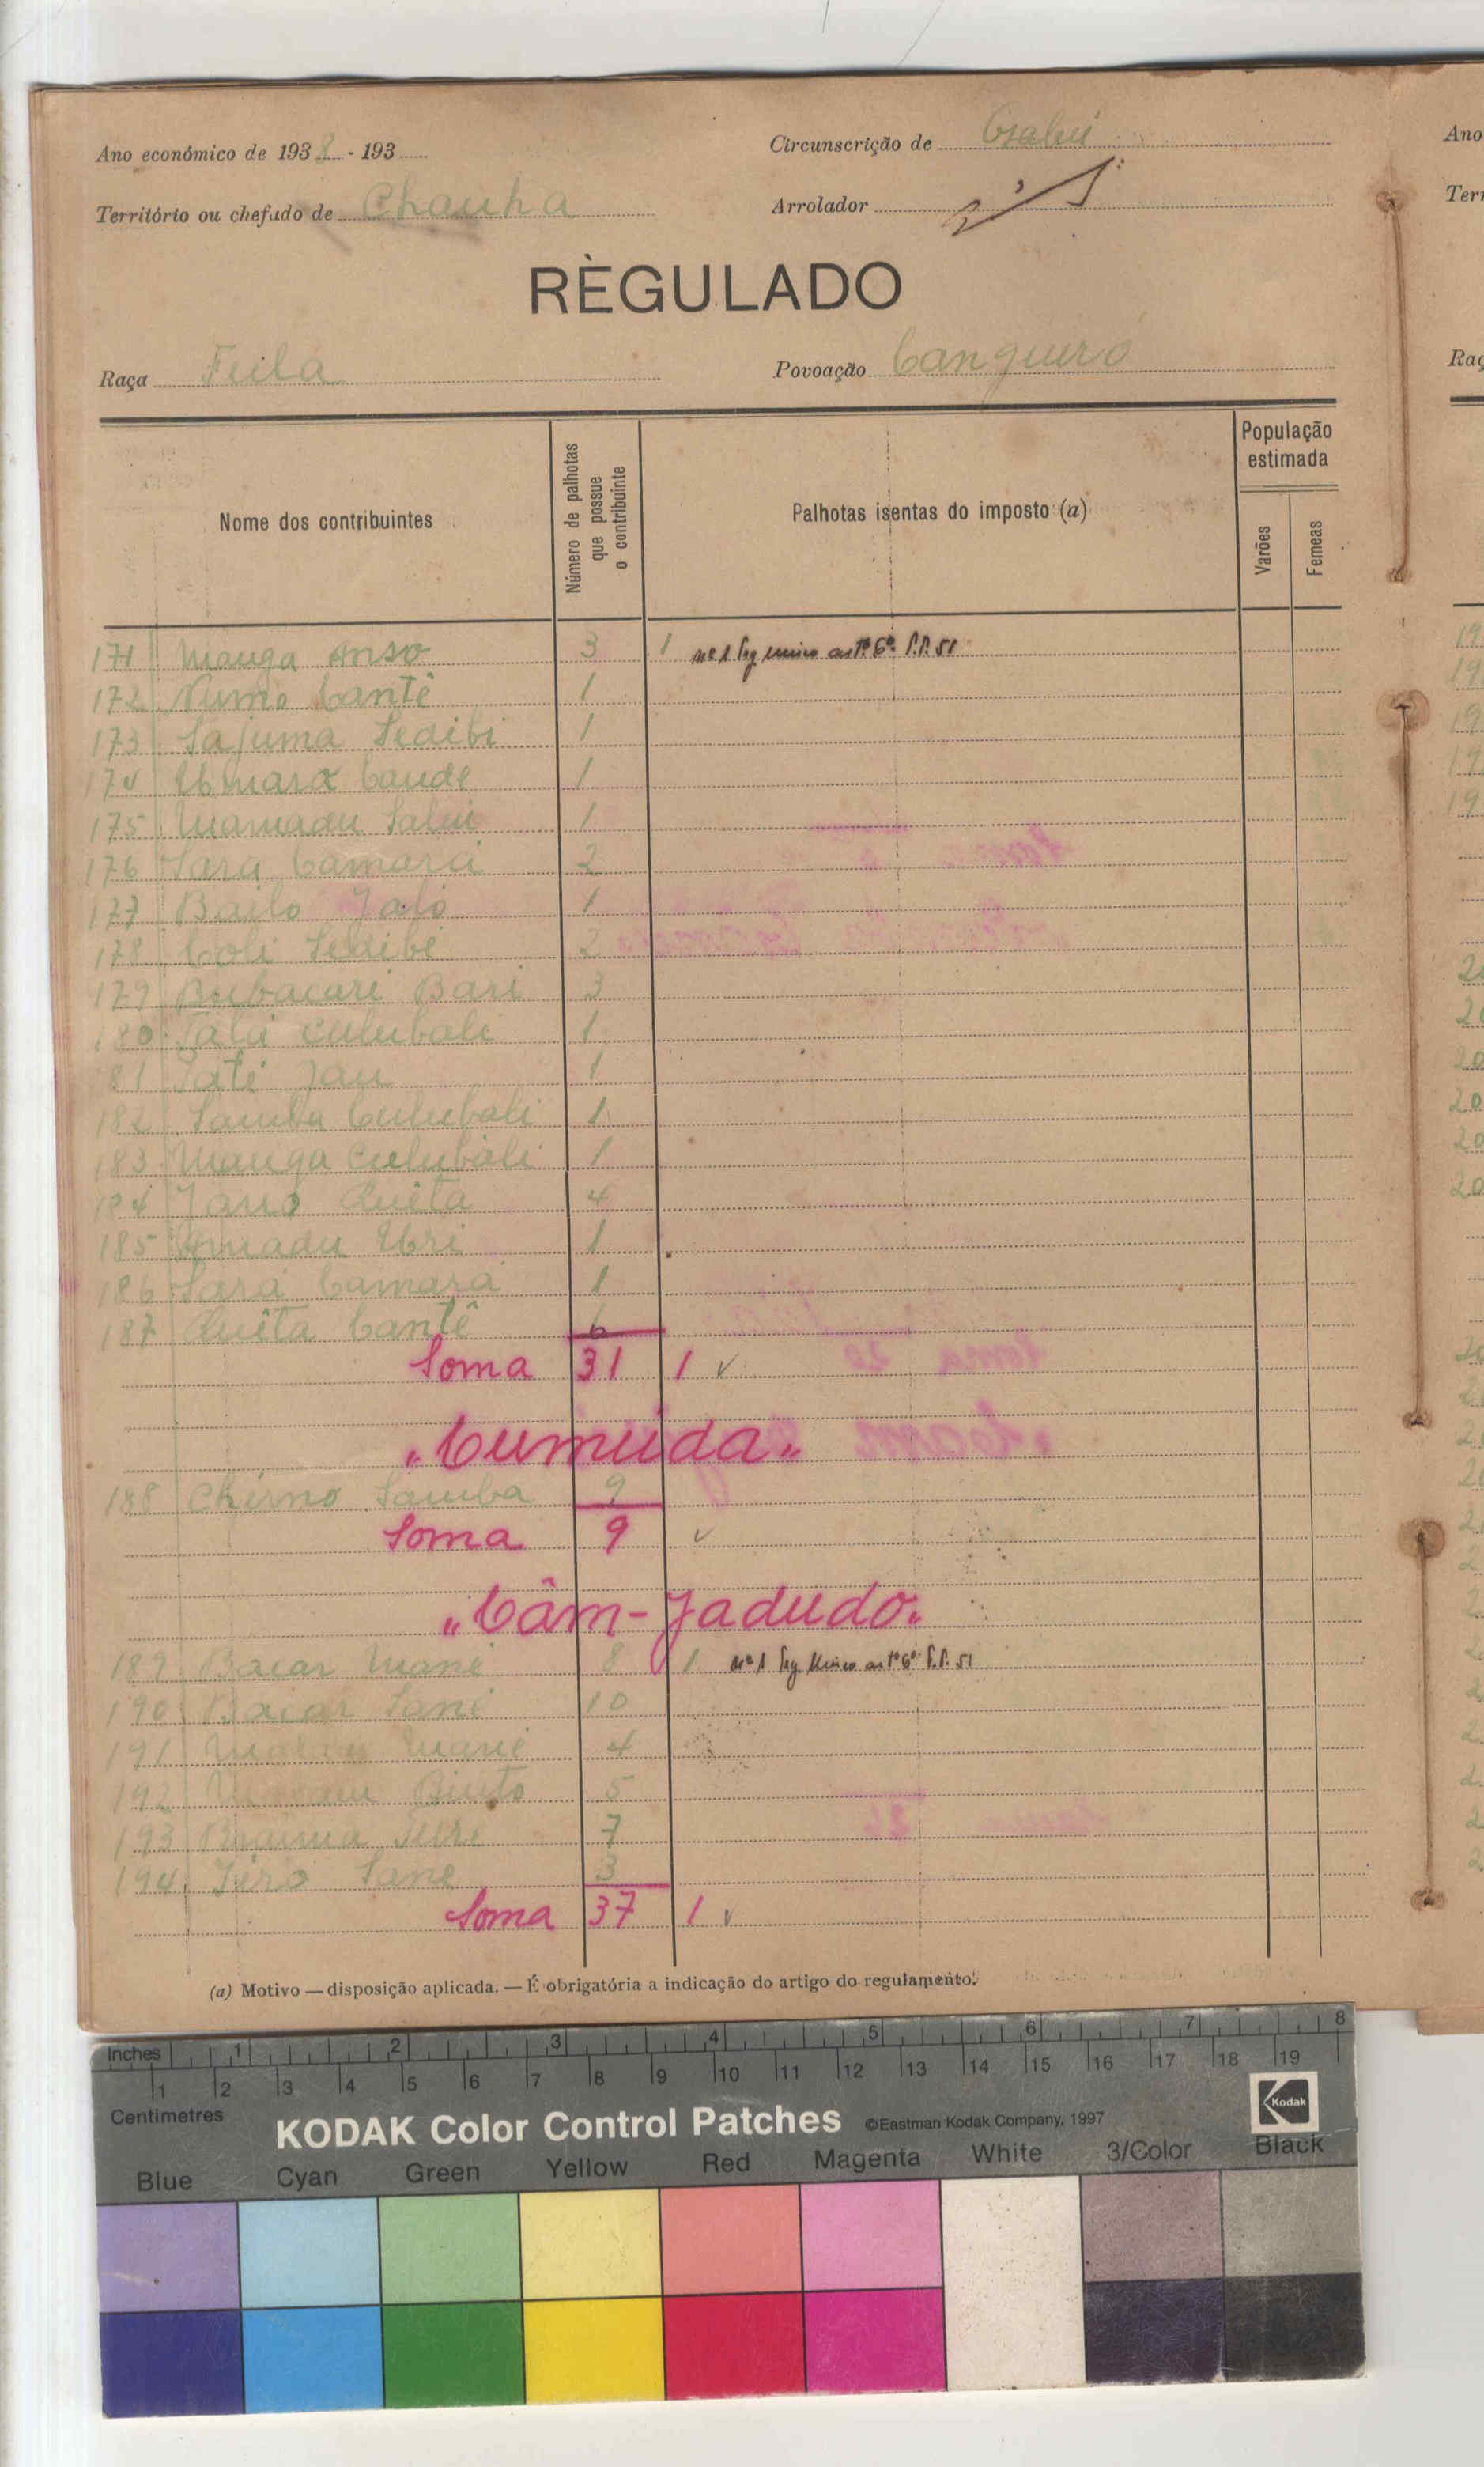 Ano económico de 1938 - 193
Circunscrição de Gabú
Território ou chefado de Chanha
Arrolador
RÈGULADO
Raça Fula
Povoação Canquero
Nome dos contribuintes
Número de palhotas que possue o contribuinte
Palhotas isentas do imposto (a)
População estimada
Varões
Femeas
171 Manga 3 1 nº 1 artº 6º
172 Numo Cantê 1
173 Sajuma Sedibi 1
174 Umara Caude 1
175 Mamadu Saliu 1
176 Sara Camara 2
177 Bailo Jaló 1
178 Coli Sedibé 2
179 Bubacari Bari 3
180 Culubali 1
181 Jau 1
182 Samba Culubali 1
183 Manga Culubali 1
184 Quêta 4
185 Amadu Uri 1
186 Sara Camara 1
187 Quêta Cantê 6
Soma 31 1
"Cumuda"
188 Cherno Samba 9
Soma 9
"Câm-Jadudo"
189 Bacar Mané 8 1 nº 1 artº 6º
190 Bacar Sané 10
191 Mané 4
192 Binto 5
193 Braima 7
194 Sane 3
Soma 37 1
(a) Motivo — disposição aplicada. — É obrigatória a indicação do artigo do regulamento.
Inches 1 2 3 4 5 6 7 8
1 2 3 4 5 6 7 8 9 10 11 12 13 14 15 16 17 18 19
Centimetres
KODAK Color Control Patches ©Eastman Kodak Company, 1997
Kodak
Blue Cyan Green Yellow Red Magenta White 3/Color Black
Ano